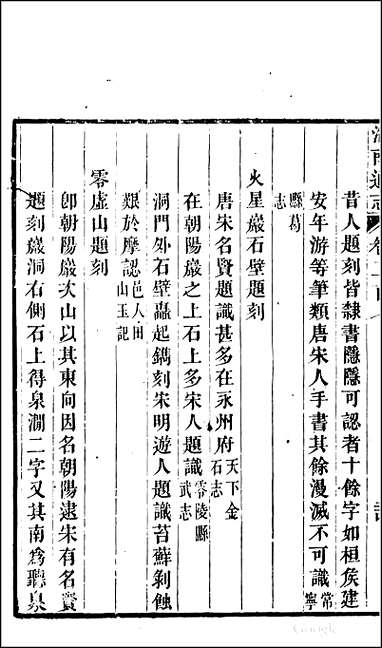 昔人題刻皆隸書隱隱可認者十餘字如桓侯建
安年游等筆類唐宋人手書其餘漫滅不可識常寧
縣葛
志
火星巖石壁題刻
唐宋名賢題識甚多在永州府天下金石志
在朝陽巖之上石上多宋人題識零陵縣武志
洞門外石壁矗起鐫刻宋明遊人題識苔蘚剝蝕
艱於摩認邑人田山玉記
零虛山題刻
卽朝陽巖次山以其東向因名朝陽逮宋有名賢
題刻巖洞右側石上得泉澗二字又其南為聽泉